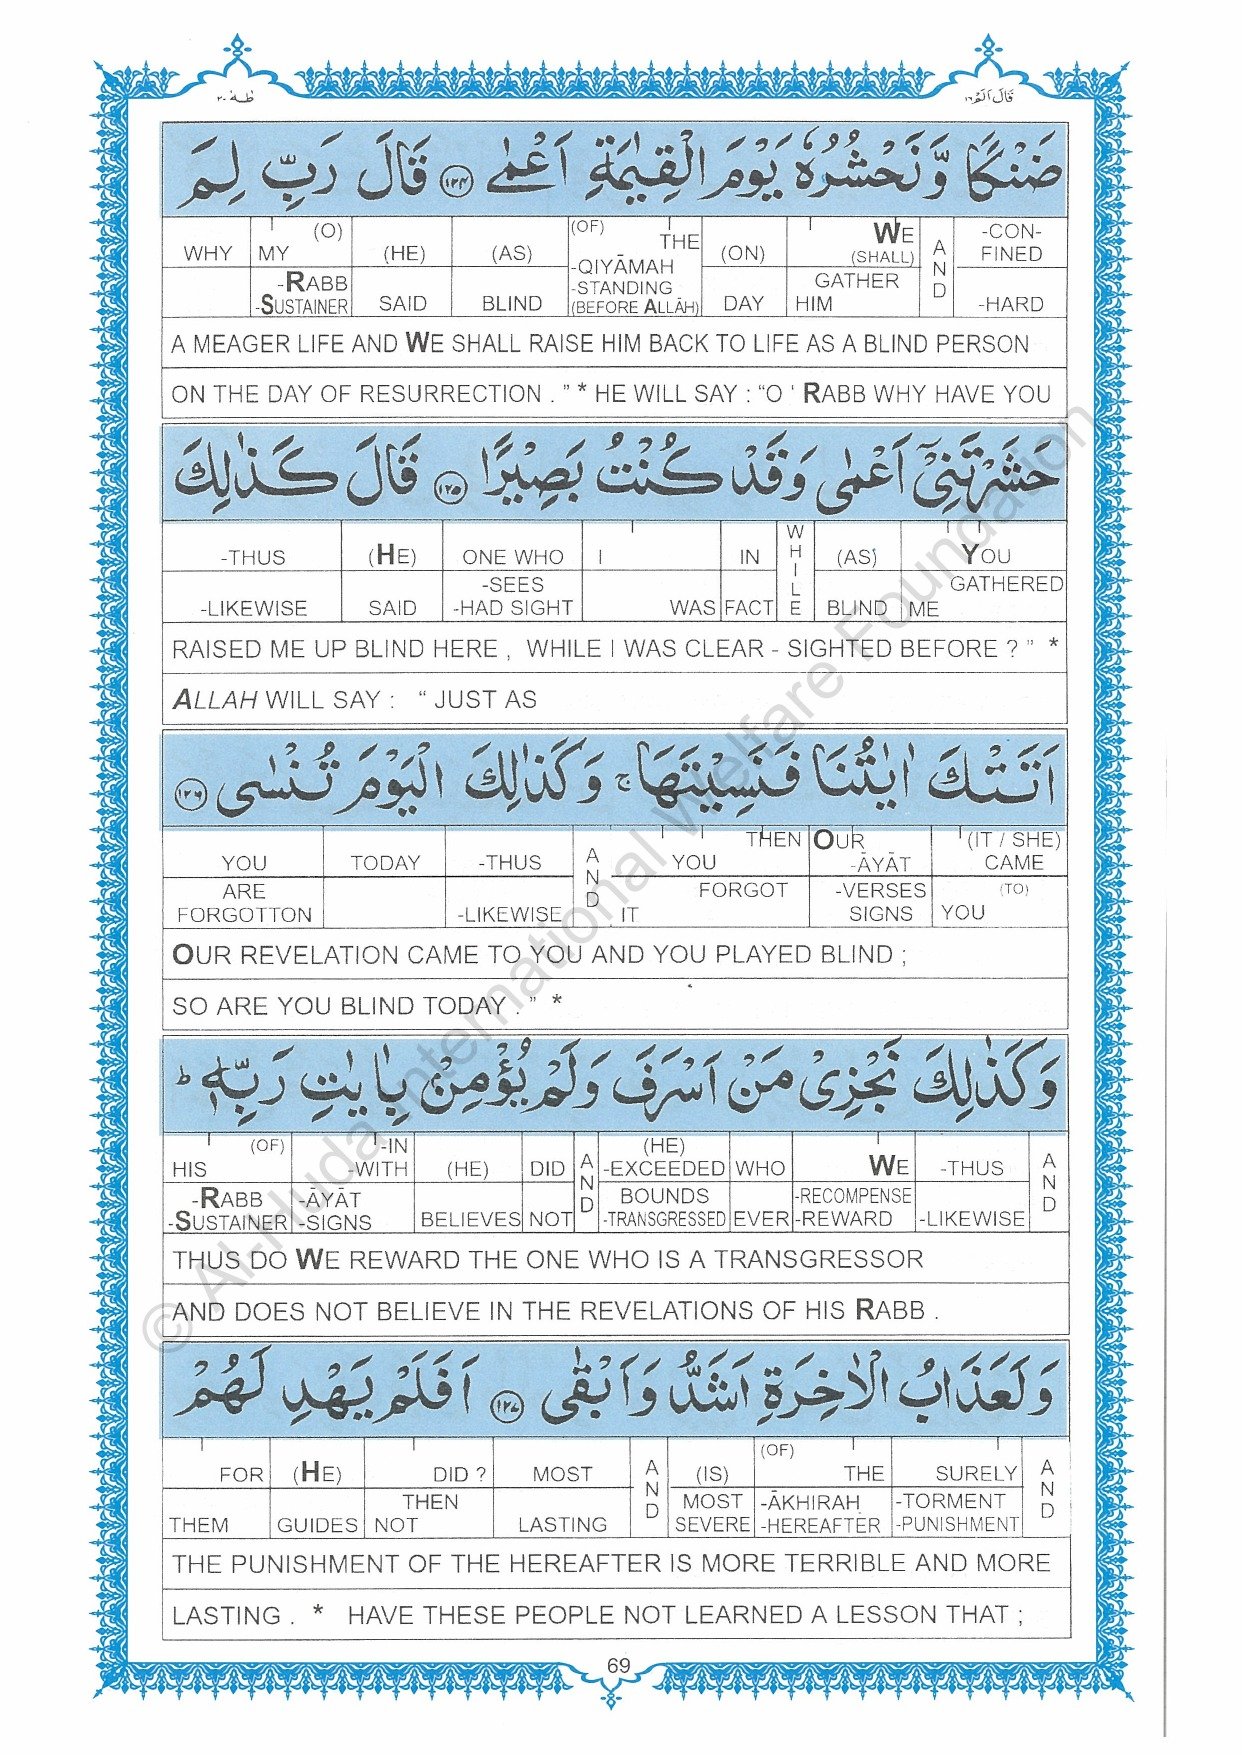 طٰهٰ ٢٠
قَالَ اَلَمْ ١٦
ضَنْكًا وَّنَحْشُرُهٗ يَوْمَ الْقِيٰمَةِ اَعْمٰى ١٢٤ قَالَ رَبِّ لِمَ
WHY MY (O) (HE) (AS) (OF) THE (ON) WE (SHALL) AND -CON-FINED
-RABB -SUSTAINER SAID BLIND -QIYĀMAH -STANDING (BEFORE ALLĀH) DAY HIM GATHER -HARD
A MEAGER LIFE AND WE SHALL RAISE HIM BACK TO LIFE AS A BLIND PERSON
ON THE DAY OF RESURRECTION . ” * HE WILL SAY : “O ‘ RABB WHY HAVE YOU
حَشَرْتَنِيْٓ اَعْمٰى وَقَدْ كُنْتُ بَصِيْرًا ١٢٥ قَالَ كَذٰلِكَ
-THUS (HE) ONE WHO I IN WHILE (AS) YOU
-LIKEWISE SAID -SEES -HAD SIGHT WAS FACT BLIND ME GATHERED
RAISED ME UP BLIND HERE , WHILE I WAS CLEAR - SIGHTED BEFORE ? ” *
ALLAH WILL SAY : “ JUST AS
اَتَتْكَ اٰيٰتُنَا فَنَسِيْتَهَا ج وَكَذٰلِكَ الْيَوْمَ تُنْسٰى ١٢٦
YOU TODAY -THUS AND YOU THEN OUR -ĀYĀT (IT / SHE) CAME
ARE FORGOTTON -LIKEWISE IT FORGOT -VERSES SIGNS YOU (TO)
OUR REVELATION CAME TO YOU AND YOU PLAYED BLIND ;
SO ARE YOU BLIND TODAY . ” *
وَكَذٰلِكَ نَجْزِيْ مَنْ اَسْرَفَ وَلَمْ يُؤْمِنْۢ بِاٰيٰتِ رَبِّهٖ ط
HIS (OF) -IN -WITH (HE) DID AND (HE) -EXCEEDED WHO WE -THUS AND
-RABB -SUSTAINER -ĀYĀT -SIGNS BELIEVES NOT BOUNDS -TRANSGRESSED EVER -RECOMPENSE -REWARD -LIKEWISE
THUS DO WE REWARD THE ONE WHO IS A TRANSGRESSOR
AND DOES NOT BELIEVE IN THE REVELATIONS OF HIS RABB .
وَلَعَذَابُ الْاٰخِرَةِ اَشَدُّ وَاَبْقٰى ١٢٧ اَفَلَمْ يَهْدِ لَهُمْ
FOR (HE) DID ? MOST AND (IS) (OF) THE SURELY AND
THEM GUIDES NOT THEN LASTING MOST SEVERE -ĀKHIRAH -HEREAFTER -TORMENT -PUNISHMENT
THE PUNISHMENT OF THE HEREAFTER IS MORE TERRIBLE AND MORE
LASTING . * HAVE THESE PEOPLE NOT LEARNED A LESSON THAT ;
69
© Al-Huda International Welfare Foundation